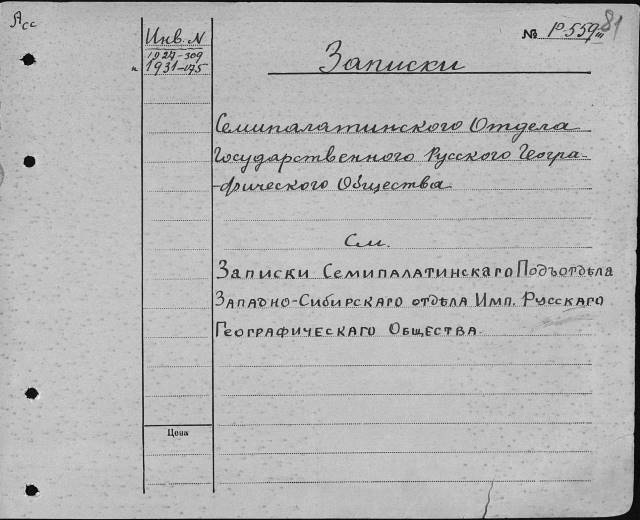 Асс
Инв. N
1927-309
и 1931-175
№ P 559 III
81
Записки
Семипалатинского Отдела
Государственного Русского Геогра-
-фического Общества.
См.
Записки Семипалатинскаго Подъотдѣла
Западно-Сибирскаго отдѣла Имп. Русскаго
Географическаго Общества.
Цена